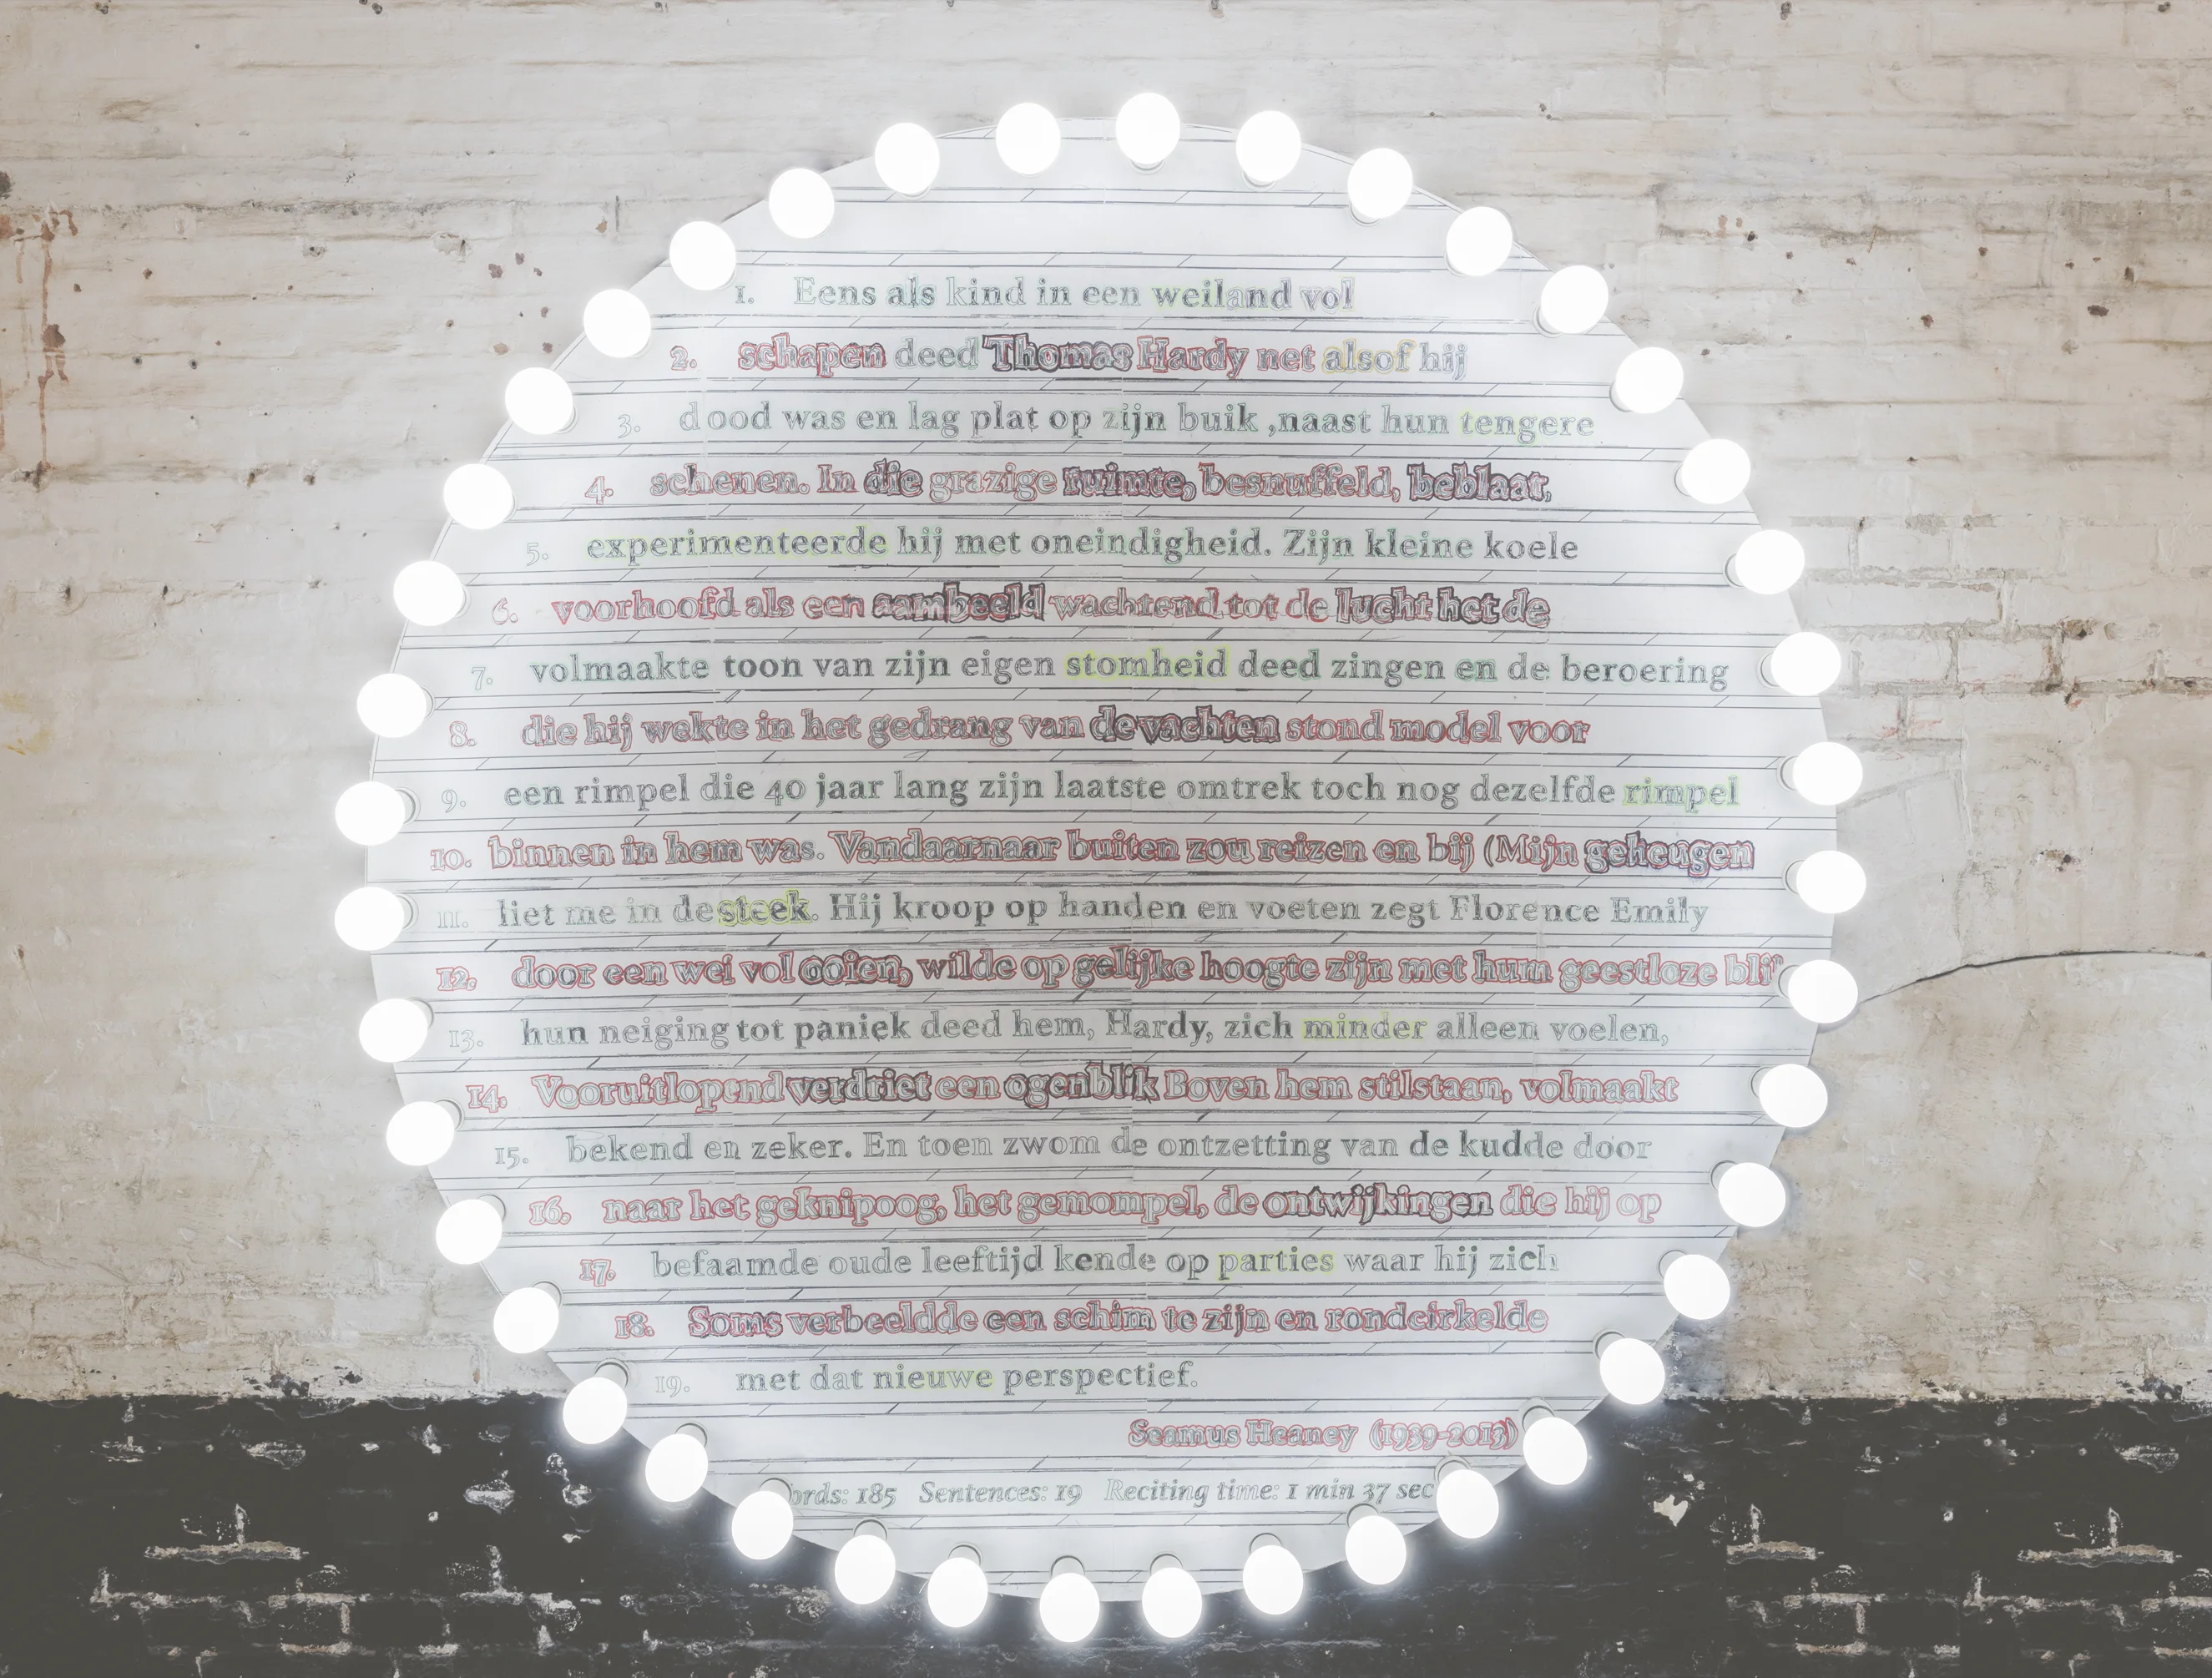 1. Eens als kind in een weiland vol
2. schapen deed Thomas Hardy net alsof hij
3. dood was en lag plat op zijn buik ,naast hun tengere
4. schenen. In die grazige ruimte, besnuffeld, beblaat,
5. experimenteerde hij met oneindigheid. Zijn kleine koele
6. voorhoofd als een aambeeld wachtend tot de lucht het de
7. volmaakte toon van zijn eigen stomheid deed zingen en de beroering
8. die hij wekte in het gedrang van de vachten stond model voor
9. een rimpel die 40 jaar lang zijn laatste omtrek toch nog dezelfde rimpel
10. binnen in hem was. Vandaarnaar buiten zou reizen en bij (Mijn geheugen
11. liet me in de steek. Hij kroop op handen en voeten zegt Florence Emily
12. door een wei vol ooien, wilde op gelijke hoogte zijn met hum geestloze
13. hun neiging tot paniek deed hem, Hardy, zich minder alleen voelen,
14. Vooruitlopend verdriet een ogenblik Boven hem stilstaan, volmaakt
15. bekend en zeker. En toen zwom de ontzetting van de kudde door
16. naar het geknipoog, het gemompel, de ontwijkingen die hij op
17. befaamde oude leeftijd kende op parties waar hij zich
18. Soms verbeeldde een schim te zijn en rondcirkelde
19. met dat nieuwe perspectief.
Seamus Heaney (1939-2013)
ords: 185 Sentences: 19 Reciting time: 1 min 37 sec